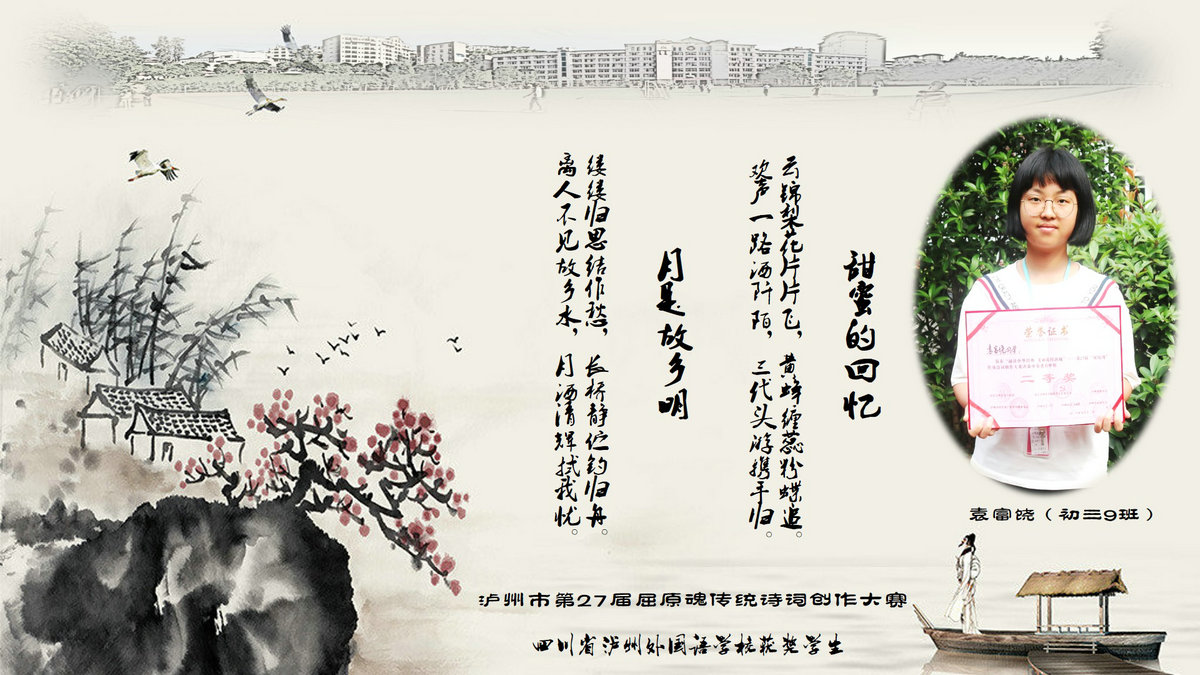 甜蜜的回忆
云锦梨花片片飞，黄蜂缠蕊粉蝶追。
欢声一路洒阡陌，三代头游携手归。
月是故乡明
缕缕归思结作愁，长桥静伫钓归舟。
离人不见故乡水，月洒清辉拭我忧。
荣誉证书
二等奖
袁富饶（初三9班）
泸州市第27届屈原魂传统诗词创作大赛
四川省泸州外国语学校获奖学生